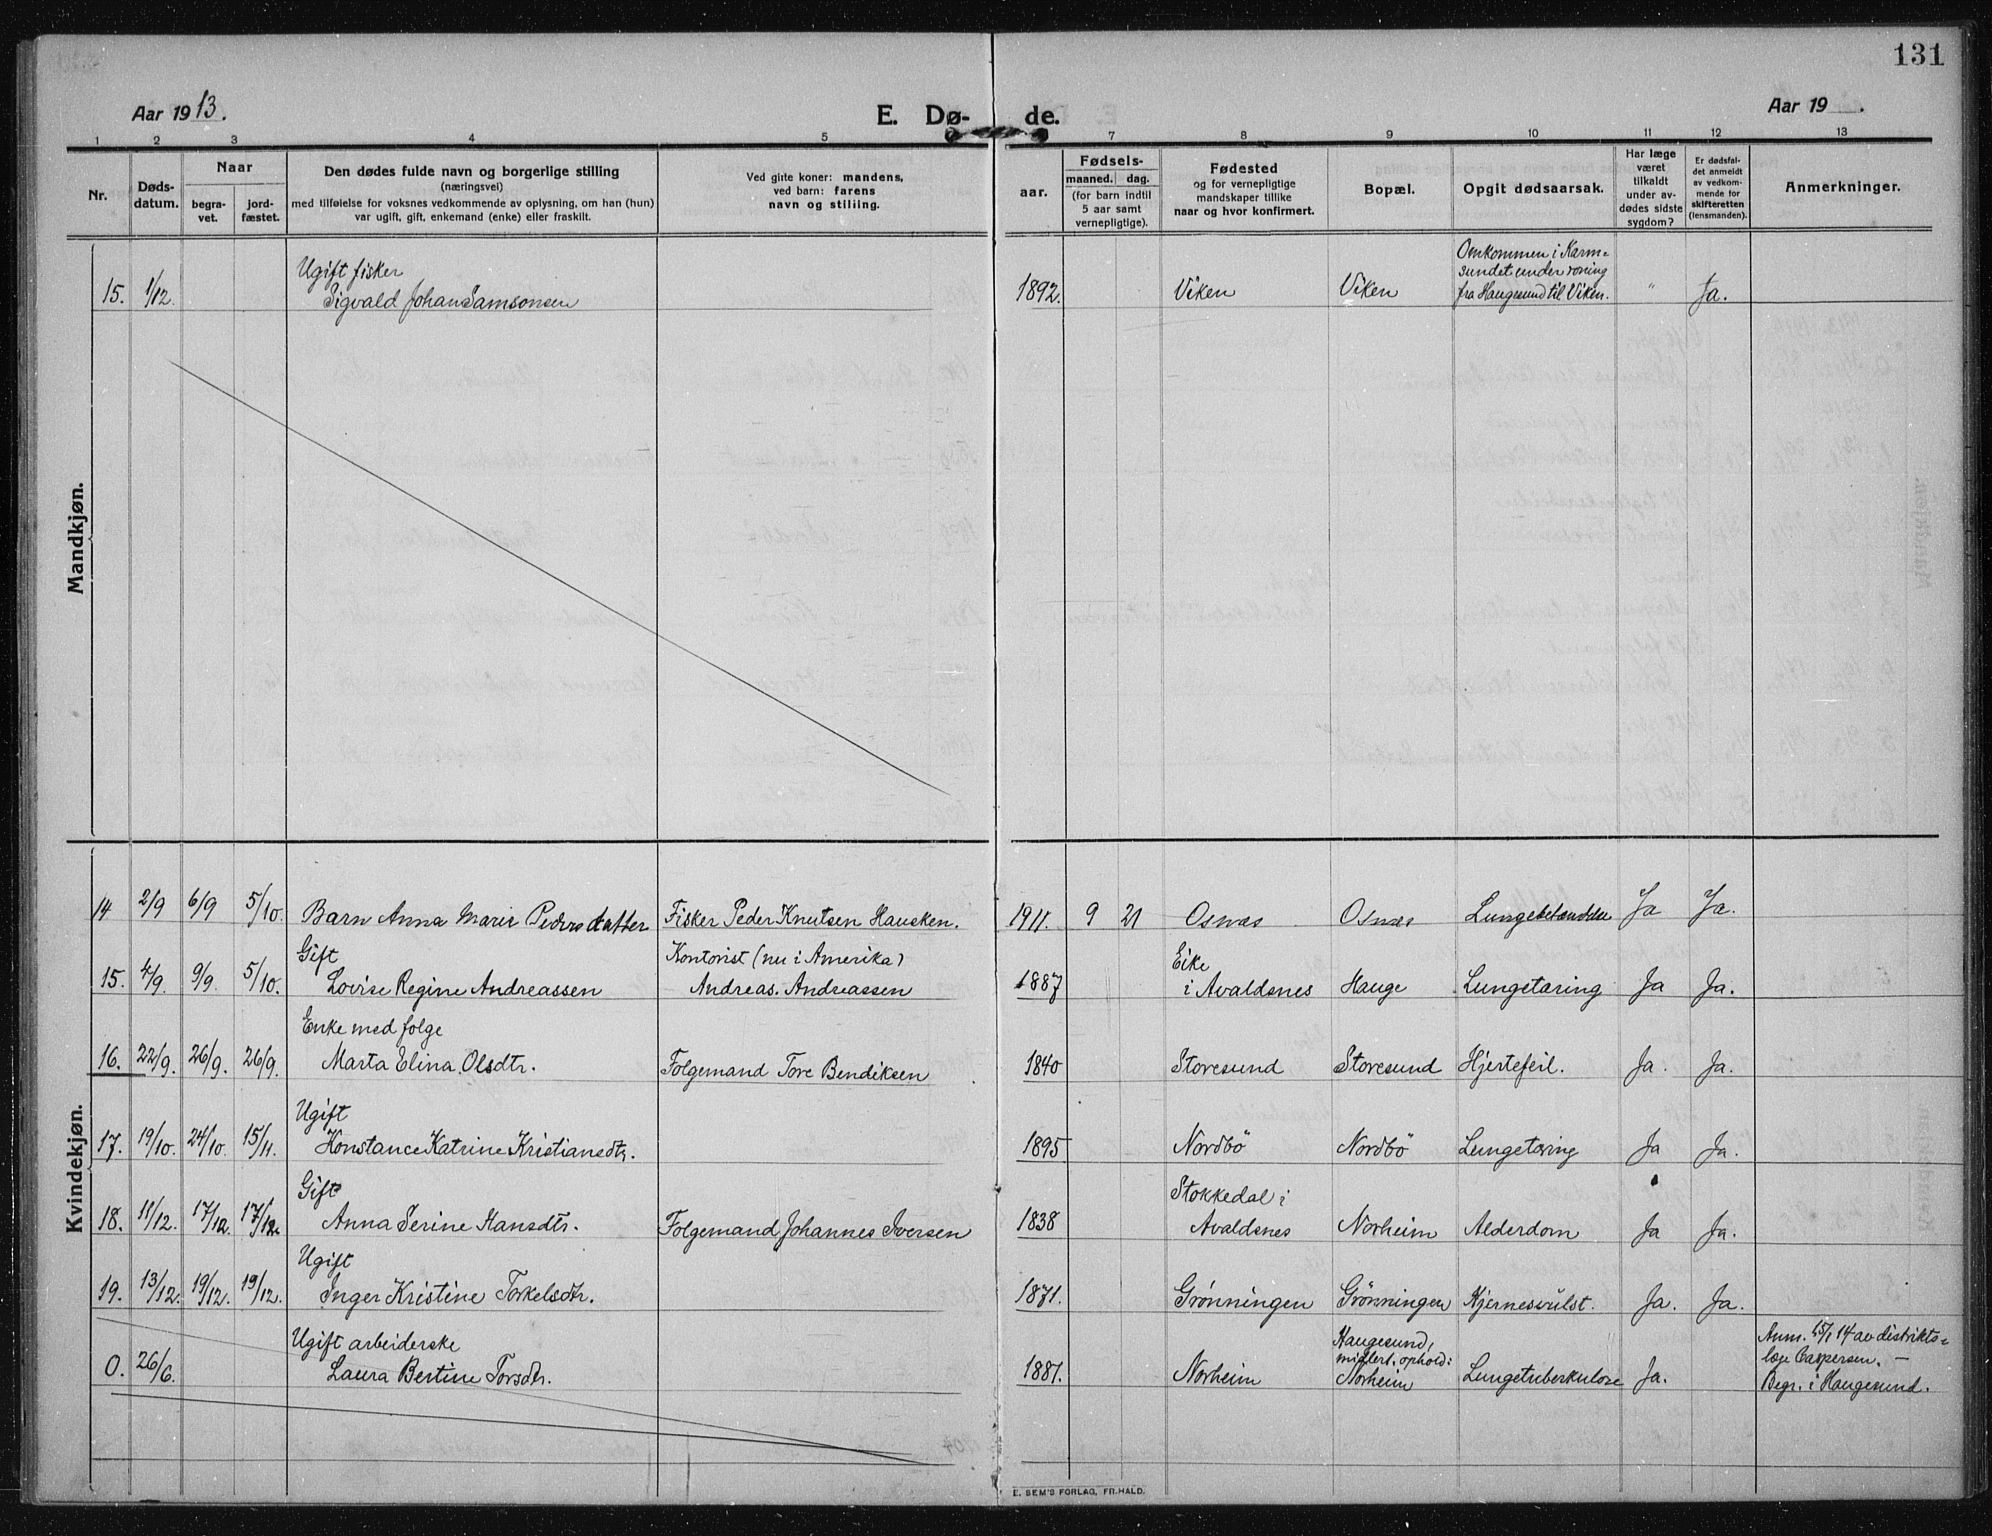 131
Aar 1913.
E. Dø-
de.
Aar 19 .
1 2 3 4 5 7 8 9 10 11 12 13
Nr.
Døds-
datum.
Naar
begra-
vet.
jord-
fæstet.
Den dødes fulde navn og borgerlige stilling
(næringsvei)
med tilføielse for voksnes vedkommende av oplysning, om han (hun)
var ugift, gift, enkemand (enke) eller fraskilt.
Ved gifte koner: mandens,
ved barn: farens
navn og stilling.
aar.
Fødsels-
maaned. dag.
(for barn indtil
5 aar samt
vernepligtige).
Fødested
og for vernepligtige
mandskaper tillike
naar og hvor konfirmert.
Bopæl.
Opgit dødsaarsak.
Har læge
været
tilkaldt
under av-
dødes sidste
sygdom?
Er dødsfal-
det anmeldt
av vedkom-
mende for
skifteretten
(lensmanden).
Anmerkninger.
Mandkjøn.
15. 1/12. Ugift fisker
Sigvald Johan Samsonsen
1892. Viken Viken
Omkommen i Karm=
sundet under roning
fra Haugesund til Viken.
" Ja.
Kvindekjøn.
14 2/9 6/9 5/10. Barn Anna Marie Pedersdatter Fisker Peder Knutsen Hausken. 1911. 9 21 Osnæs Osnæs Lungebetændelse Ja Ja.
15. 4/9. 9/9. 5/10. Gift
Lovise Regine Andreassen
Kontorist (nu i Amerika)
Andreas Andreassen
1887 Eike
i Avaldsnes Hauge Lungetæring Ja Ja.
16. 22/9. 26/9. 26/9. Enke med folge
Marta Elina Olsdtr. Folgemand Tore Bendiksen 1840 Storesund Storesund Hjertefeil. Ja. Ja.
17. 19/10. 24/10. 15/11. Ugift
Konstance Katrine Kristiansdtr. 1895 Nordbö Nordbö Lungetæring Ja Ja.
18. 11/12. 17/12. 17/12. Gift
Anna Serine Hansdtr. Folgemand Johannes Iversen 1838 Stokkedal i
Avaldsnes Norheim Alderdom Ja Ja.
19. 13/12. 19/12. 19/12. Ugift
Inger Kristine Torkelsdtr. 1871. Grönningen Grönningen Hjernesvülst. Ja. Ja.
0. 26/6. Ugift arbeiderske
Laura Bertine Torsdtr. 1881. Norheim
Haugesund,
midlert. ophold:
Norheim
Lungetuberkulose Ja.
Anm. 15/1 14 av distrikts=
læge Caspersen. —
Begr. i Haugesund.
E. SEM'S FORLAG, FR.HALD.